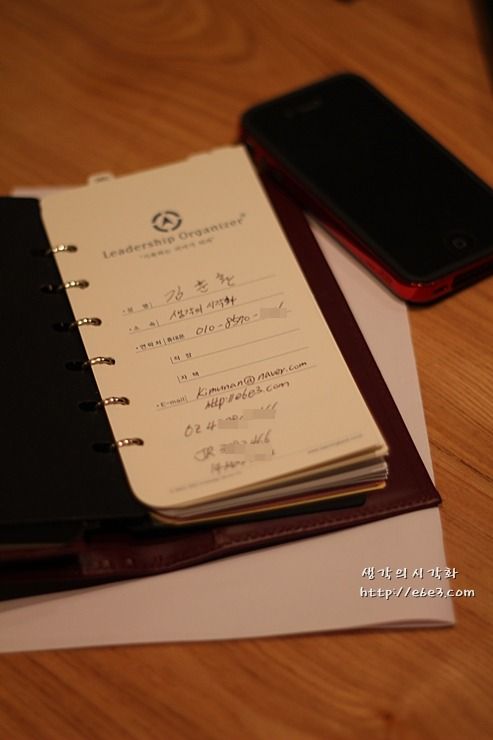 Leadership Organizer
· 성 명
· 소 속 생각의 시각화
· 연락처 휴대폰 010-8570-
직 장
자 택
· E-mail kimunan@naver.com
http://e6e3.com
02 4
JR 466
생각의시각화
http://e6e3.com